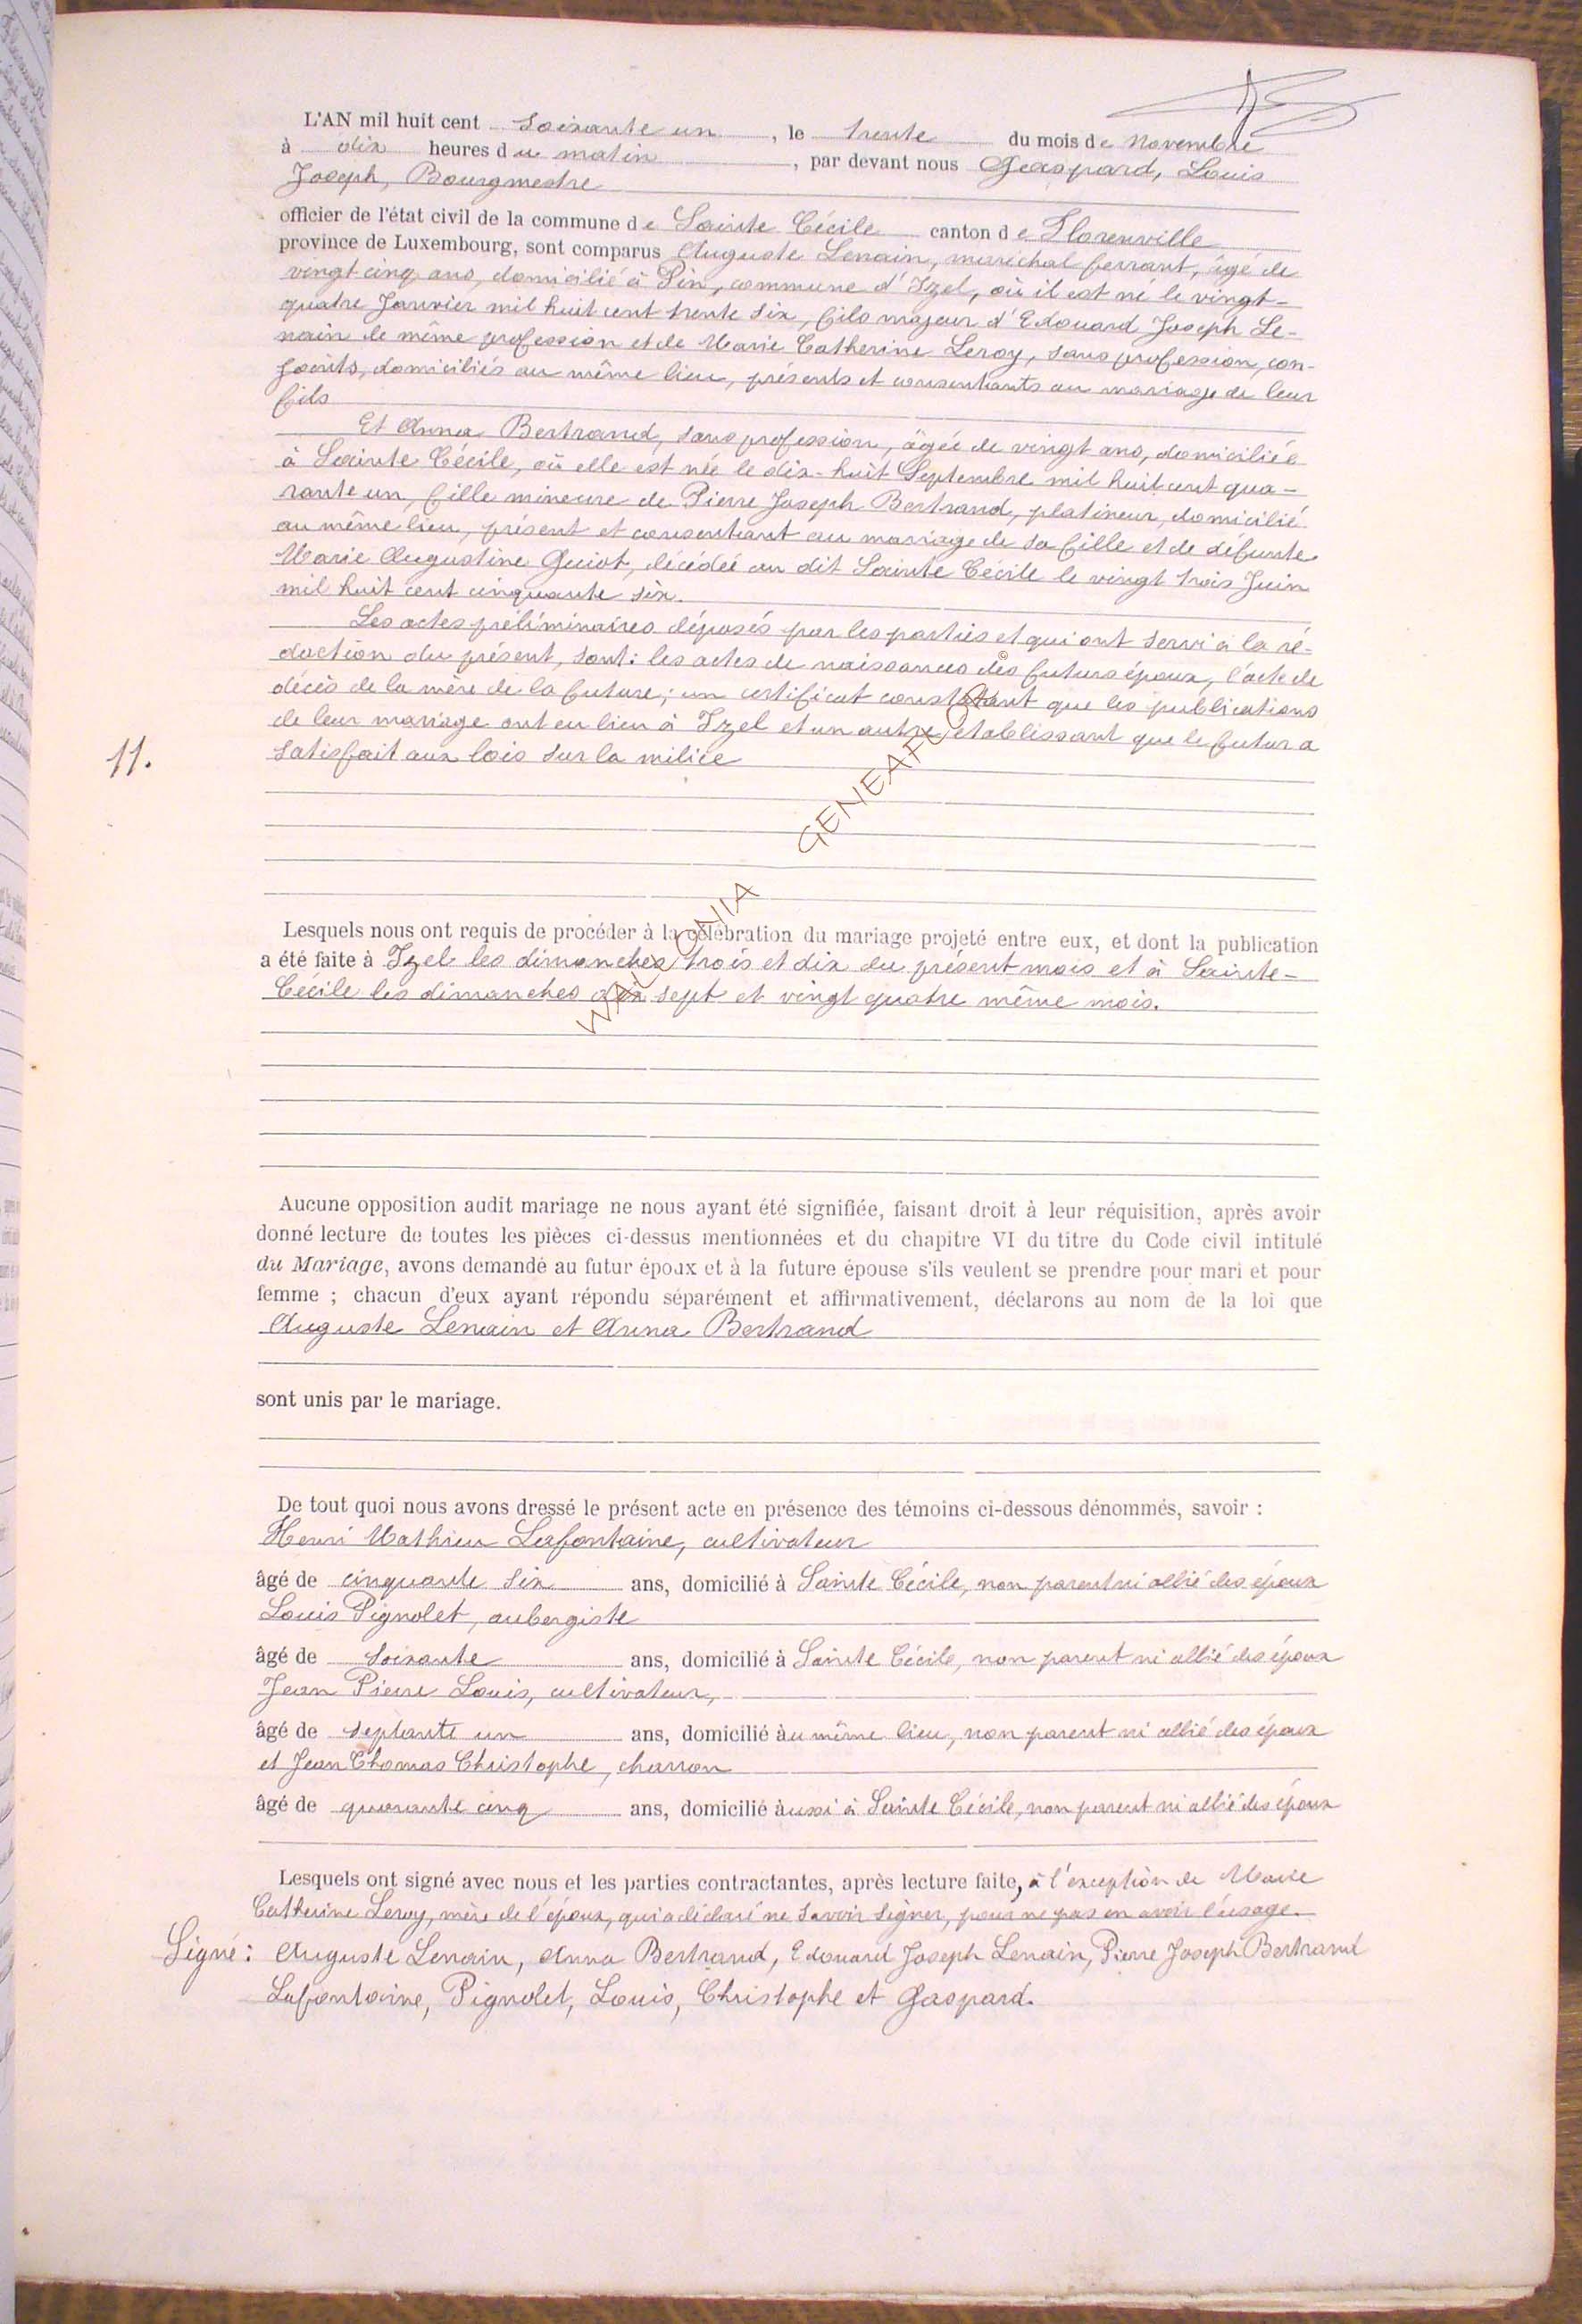 L'AN mil huit cent soixante un, le trente du mois de Novembre
à dix heures du matin, par devant nous Gaspard, Louis
Joseph, Bourgmestre
officier de l'état civil de la commune de Sainte Cécile canton de Florenville
province de Luxembourg, sont comparus Auguste Lenain, maréchal ferrant, âgé de
vingt cinq ans, domicilié à Pin, commune d'Izel, où il est né le vingt-
quatre Janvier mil huit cent trente six, fils majeur d'Edouard Joseph Le-
nain de même profession et de Marie Catherine Leroy, sans profession, con-
joints, domiciliés au même lieu, présents et consentants au mariage de leur
fils
Et Anna Bertrand, sans profession, âgée de vingt ans, domiciliée
à Sainte Cécile, où elle est née le dix-huit Septembre mil huit cent qua-
rante un, fille mineure de Pierre Joseph Bertrand, platineur, domicilié
au même lieu, présent et consentant au mariage de sa fille et de défunte
Marie Augustine Guiot, décédée au dit Sainte Cécile le vingt trois Juin
mil huit cent cinquante six.
Les actes préliminaires déposés par les parties et qui ont servi à la ré-
daction du présent, sont: les actes de naissances des futurs époux, l'acte de
décès de la mère de la future; un certificat constatant que les publications
de leur mariage ont eu lieu à Izel et un autre établissant que le futur a
satisfait aux lois sur la milice
11.
WALLONIA GENEAFLOR ©
Lesquels nous ont requis de procéder à la célébration du mariage projeté entre eux, et dont la publication
a été faite à Izel les dimanches trois et dix du présent mois et à Sainte-
Cécile les dimanches dix sept et vingt quatre même mois.
Aucune opposition audit mariage ne nous ayant été signifiée, faisant droit à leur réquisition, après avoir
donné lecture de toutes les pièces ci-dessus mentionnées et du chapitre VI du titre du Code civil intitulé
du Mariage, avons demandé au futur époux et à la future épouse s'ils veulent se prendre pour mari et pour
femme ; chacun d'eux ayant répondu séparément et affirmativement, déclarons au nom de la loi que
Auguste Lenain et Anna Bertrand
sont unis par le mariage.
De tout quoi nous avons dressé le présent acte en présence des témoins ci-dessous dénommés, savoir :
Henri Mathieu Lafontaine, cultivateur
âgé de cinquante six ans, domicilié à Sainte Cécile, non parent ni allié des époux
Louis Pignolet, aubergiste
âgé de soixante ans, domicilié à Sainte Cécile, non parent ni allié des époux
Jean Pierre Louis, cultivateur,
âgé de septante un ans, domicilié àu même lieu, non parent ni allié des époux
et Jean Thomas Christophe, charron
âgé de quarante cinq ans, domicilié àussi à Sainte Cécile, non parent ni allié des époux
Lesquels ont signé avec nous et les parties contractantes, après lecture faite, à l'exception de Marie
Catherine Leroy, mère de l'époux, qui a déclaré ne savoir signer, pour ne pas en avoir l'usage.
Signé: Auguste Lenain, Anna Bertrand, Edouard Joseph Lenain, Pierre Joseph Bertrand
Lafontaine, Pignolet, Louis, Christophe et Gaspard.